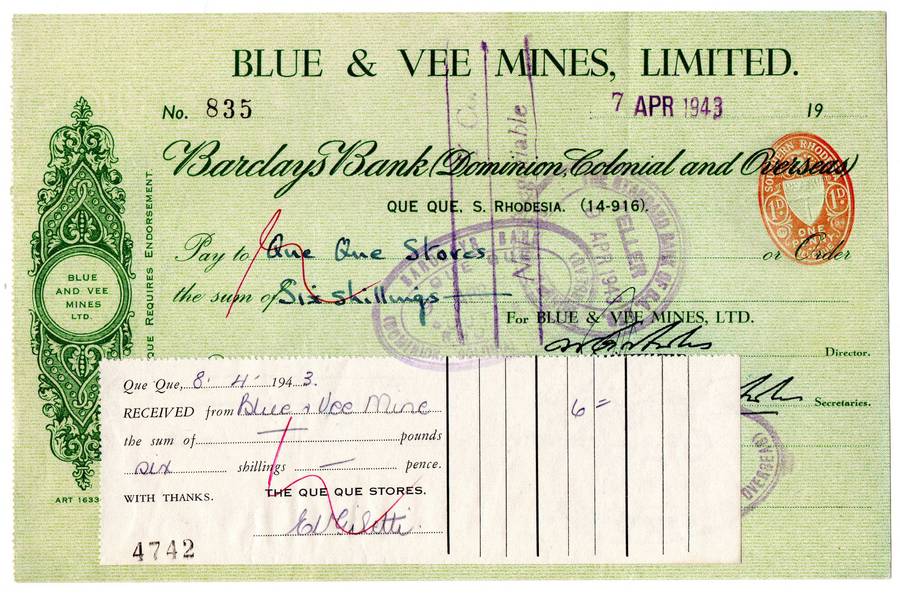 BLUE & VEE MINES, LIMITED.
No. 835
7 APR 1943
19
Barclays Bank (Dominion, Colonial and Overseas)
QUE QUE, S. RHODESIA. (14-916).
SOUTHERN RHODESIA
1D. 1D.
ONE PENNY
Pay to Que Que Stores or Order
the sum of Six shillings
BLUE
AND VEE
MINES
LTD.
QUE REQUIRES ENDORSEMENT.
Co.
BARCLAYS BANK
THE STANDARD BANK OF
TELLER
9 APR 1943
For BLUE & VEE MINES, LTD.
Director.
Secretaries.
OVERSEAS)
ART 1633
Que Que, 8. 4. 1943.
RECEIVED from Blue & Vee Mine
the sum of pounds
six shillings — pence.
WITH THANKS.
THE QUE QUE STORES.
4742
6 =